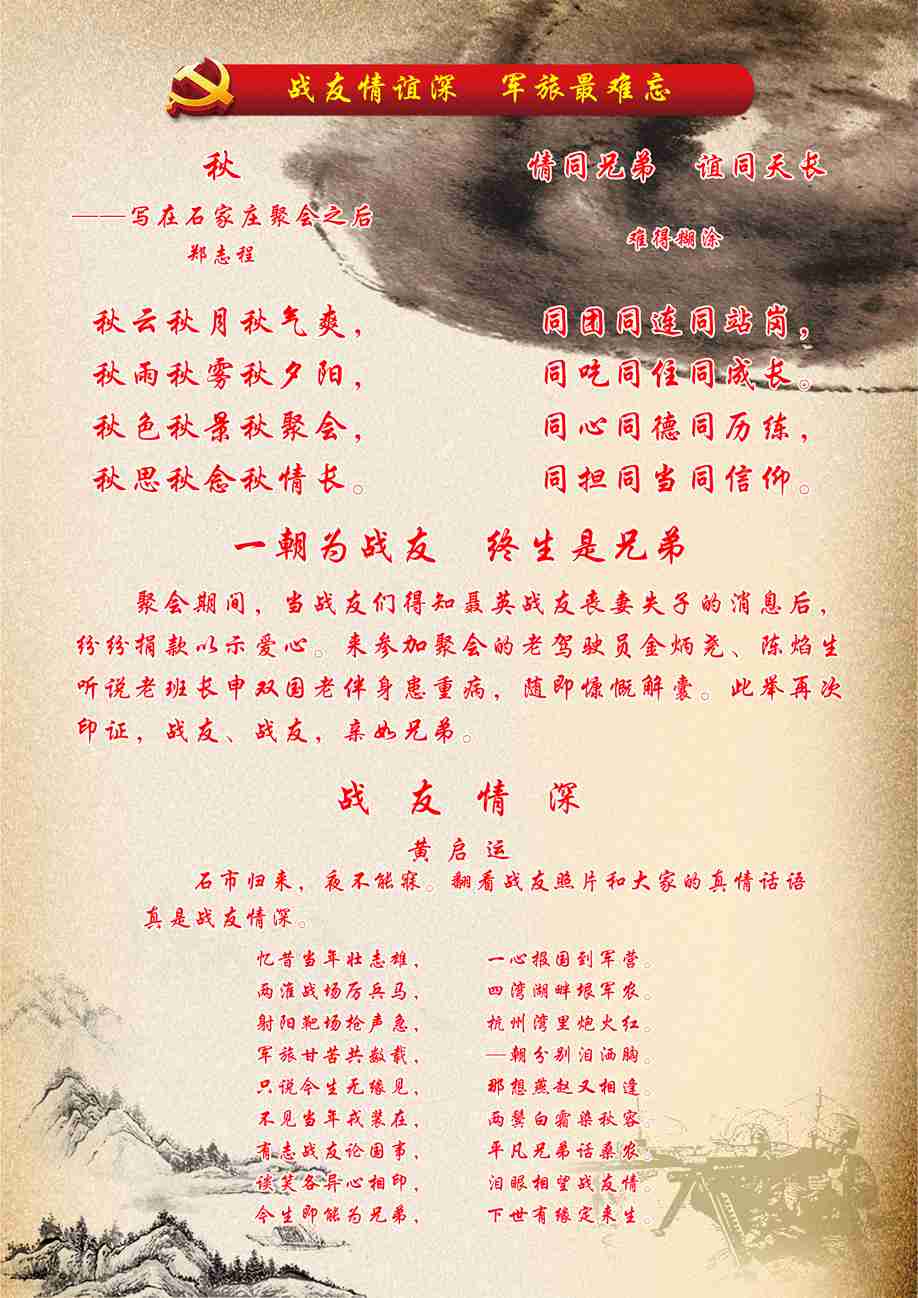 战友情谊深　军旅最难忘
秋
——写在石家庄聚会之后
郑志程
秋云秋月秋气爽，
秋雨秋雾秋夕阳，
秋色秋景秋聚会，
秋思秋念秋情长。
情同兄弟　谊同天长
难得糊涂
同团同连同站岗，
同吃同住同成长。
同心同德同历练，
同担同当同信仰。
一朝为战友　终生是兄弟
聚会期间，当战友们得知聂英战友丧妻失子的消息后，
纷纷捐款以示爱心。来参加聚会的老驾驶员金炳尧、陈焰生
听说老班长申双国老伴身患重病，随即慷慨解囊。此举再次
印证，战友、战友，亲如兄弟。
战 友 情 深
黄启运
石市归来，夜不能寐。翻看战友照片和大家的真情话语
真是战友情深。
忆昔当年壮志雄，　一心报国到军营。
两淮战场厉兵马，　四湾湖畔垠军农。
射阳靶场枪声急，　杭州湾里炮火红。
军旅甘苦共数载，　一朝分别泪洒胸。
只说今生无缘见，　那想燕赵又相逢。
不见当年戎装在，　两鬓白霜染秋容。
有志战友论国事，　平凡兄弟话桑农。
谈笑各异心相印，　泪眼相望战友情。
今生即能为兄弟，　下世有缘定来生。